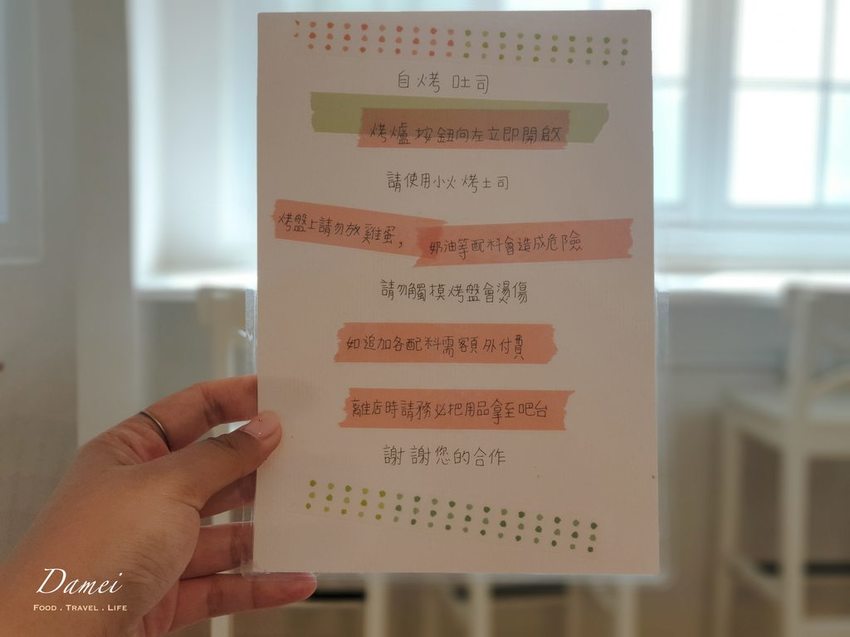 自烤吐司
烤爐按鈕向左立即開啟
請使用小火烤土司
烤盤上請勿放雞蛋,
奶油等配料會造成危險
請勿觸模烤盤會燙傷
如追加各配料需額外付費
離店時請務必把用品拿至吧台
謝謝您的合作
Damei
FOOD . TRAVEL . LIFE